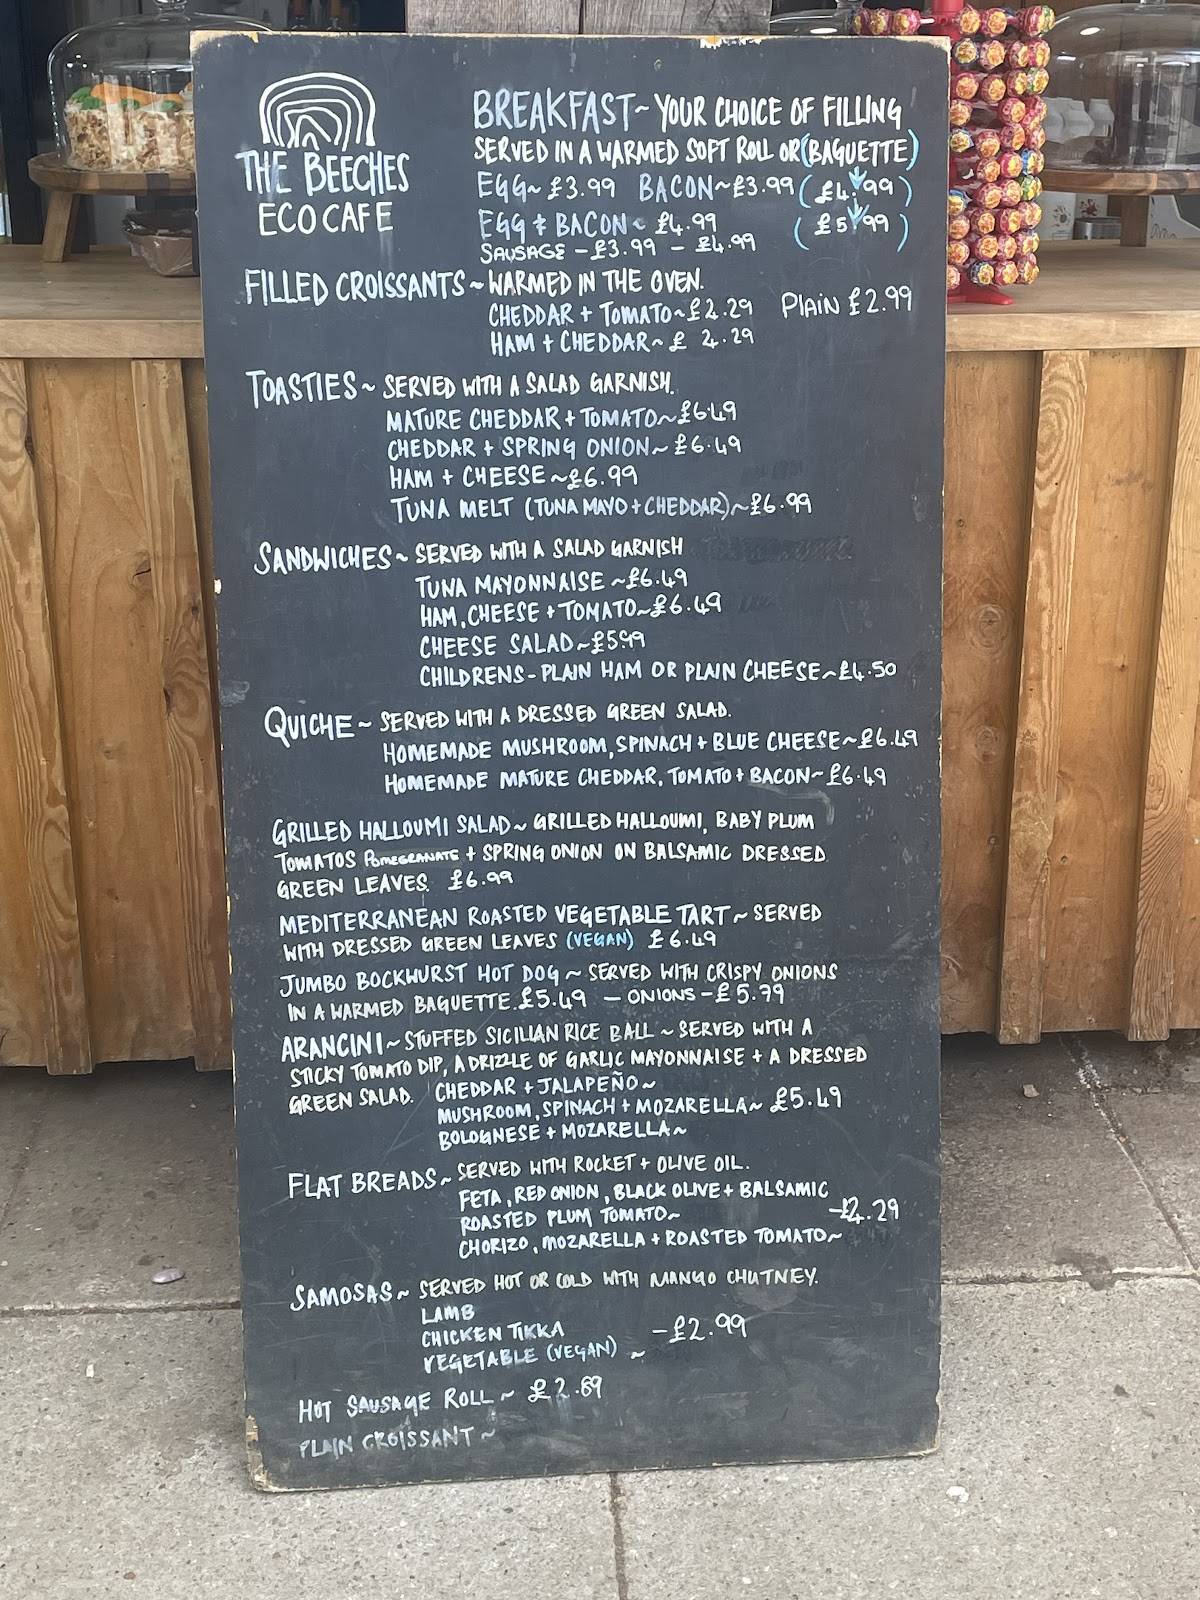 THE BEECHES
ECO CAFE
BREAKFAST ~ YOUR CHOICE OF FILLING
SERVED IN A WARMED SOFT ROLL OR (BAGUETTE)
EGG ~ £3.99 BACON ~ £3.99 (£4.99)
EGG + BACON ~ £4.99 (£5.99)
SAUSAGE - £3.99 - £4.99
FILLED CROISSANTS ~ WARMED IN THE OVEN.
CHEDDAR + TOMATO ~ £4.29 PLAIN £2.99
HAM + CHEDDAR ~ £ 4.29
TOASTIES ~ SERVED WITH A SALAD GARNISH.
MATURE CHEDDAR + TOMATO ~ £6.49
CHEDDAR + SPRING ONION ~ £6.49
HAM + CHEESE ~ £6.99
TUNA MELT (TUNA MAYO + CHEDDAR) ~ £6.99
SANDWICHES ~ SERVED WITH A SALAD GARNISH
TUNA MAYONNAISE ~ £6.49
HAM, CHEESE + TOMATO ~ £6.49
CHEESE SALAD ~ £5.99
CHILDRENS - PLAIN HAM OR PLAIN CHEESE ~ £4.50
QUICHE ~ SERVED WITH A DRESSED GREEN SALAD.
HOMEMADE MUSHROOM, SPINACH + BLUE CHEESE ~ £6.49
HOMEMADE MATURE CHEDDAR, TOMATO + BACON ~ £6.49
GRILLED HALLOUMI SALAD ~ GRILLED HALLOUMI, BABY PLUM
TOMATOS POMEGRANATE + SPRING ONION ON BALSAMIC DRESSED
GREEN LEAVES. £6.99
MEDITERRANEAN ROASTED VEGETABLE TART ~ SERVED
WITH DRESSED GREEN LEAVES (VEGAN) £6.49
JUMBO BOCKWURST HOT DOG ~ SERVED WITH CRISPY ONIONS
IN A WARMED BAGUETTE. £5.49 - ONIONS - £5.79
ARANCINI ~ STUFFED SICILIAN RICE BALL ~ SERVED WITH A
STICKY TOMATO DIP, A DRIZZLE OF GARLIC MAYONNAISE + A DRESSED
GREEN SALAD. CHEDDAR + JALAPEÑO ~
MUSHROOM, SPINACH + MOZARELLA ~ £5.49
BOLOGNESE + MOZARELLA ~
FLAT BREADS ~ SERVED WITH ROCKET + OLIVE OIL.
FETA, RED ONION, BLACK OLIVE + BALSAMIC
ROASTED PLUM TOMATO ~ £4.29
CHORIZO, MOZARELLA + ROASTED TOMATO ~
SAMOSAS ~ SERVED HOT OR COLD WITH MANGO CHUTNEY.
LAMB
CHICKEN TIKKA - £2.99
VEGETABLE (VEGAN) ~
HOT SAUSAGE ROLL ~ £2.89
PLAIN CROISSANT ~